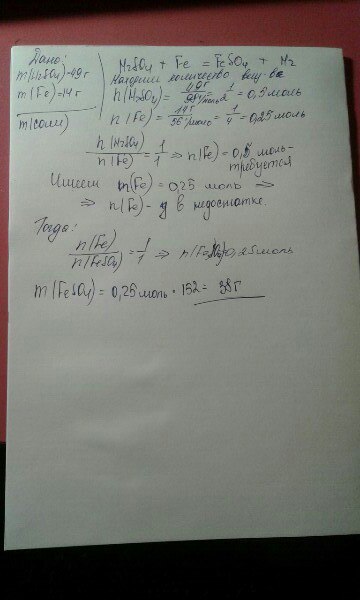 Дано:
m(H2SO4)=49г
m(Fe)=14г
m(соли)
H2SO4 + Fe = FeSO4 + H2
Находим количество вещ-ва
n(H2SO4) = 49г / 98г/моль = 1/2 = 0,5 моль
n(Fe) = 14г / 56г/моль = 1/4 = 0,25 моль
n(H2SO4) / n(Fe) = 1/1 ⇒ n(Fe) = 0,5 моль-
требуется
Имеем n(Fe) = 0,25 моль ⇒
⇒ n(Fe) - в недостатке.
Тогда:
n(Fe) / n(FeSO4) = 1/1 ⇒ n(FeSO4)=0,25 моль
m(FeSO4) = 0,25 моль · 152 = 38 г